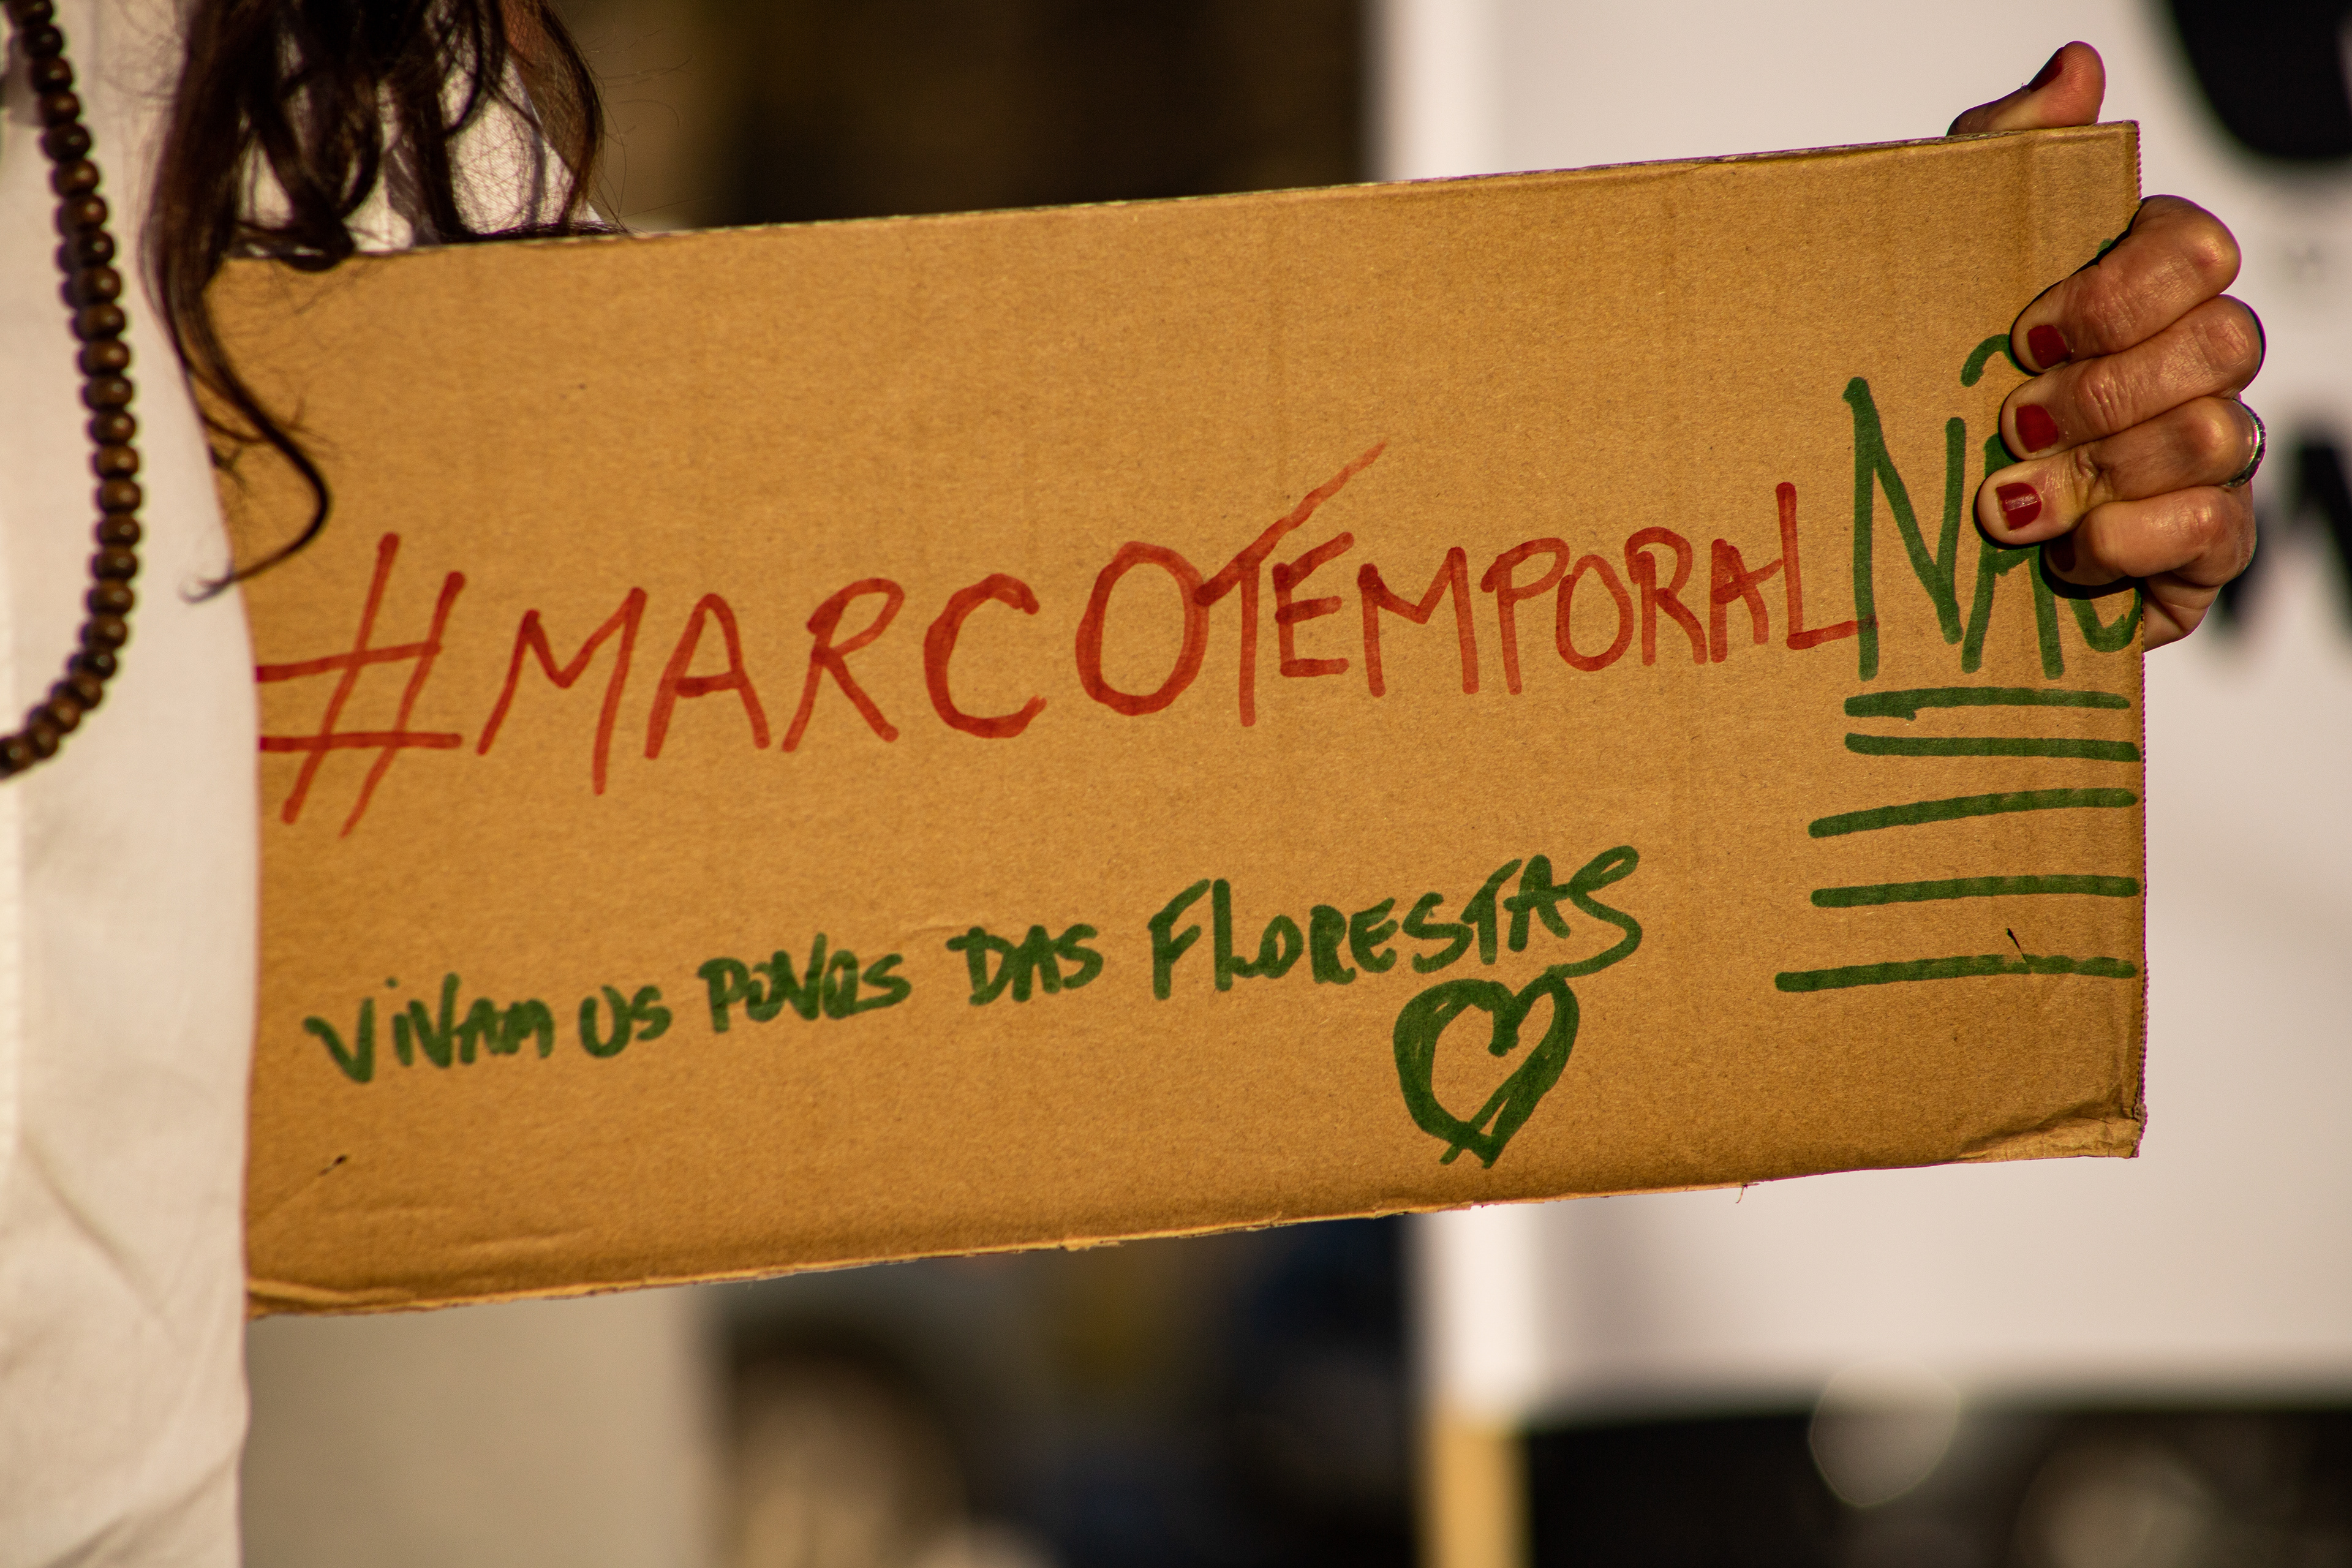 #MARCOTEMPORALNÃO
VIVAM OS POVOS DAS FLORESTAS